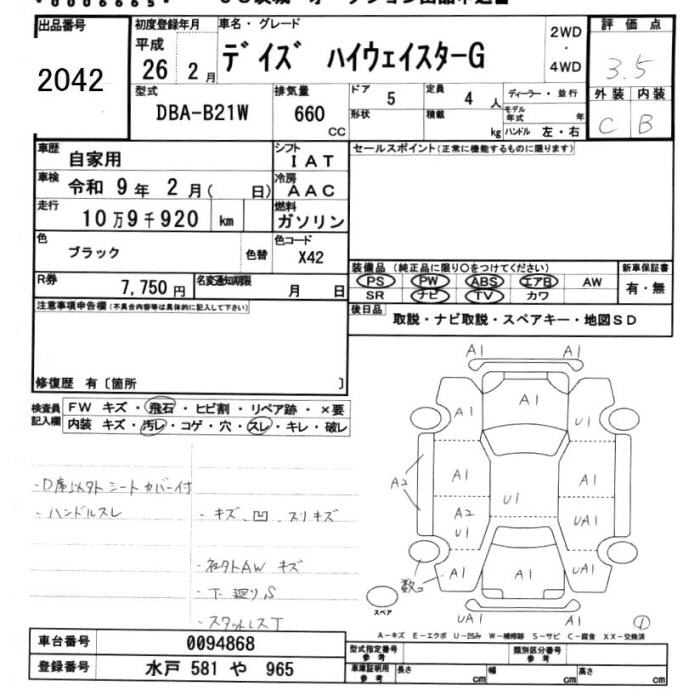 0006665
出品番号
2042
初度登録年月
平成
26 2 月
車名・グレード
デイズ ハイウェイスターG
2WD
・
4WD
評価点
3.5
外装 内装
C B
型式
DBA-B21W
排気量
660
CC
ドア
5
形状
定員
4 人
積載
kg
ディーラー・並行
モデル年式 年
ハンドル 左・右
車歴
自家用
シフト
IAT
車検
令和 9 年 2 月( 日)
冷房
AAC
走行
10万9千920 km
燃料
ガソリン
色
ブラック
色替
色コード
X42
R券
7,750 円
名変通知期限
月 日
注意事項申告欄(不具合内容等は具体的に記入して下さい)
修復歴 有〔箇所 〕
セールスポイント(正常に機能するものに限ります)
装備品(純正品に限り○をつけてください)
PS PW ABS エアB AW
SR ナビ TV カワ
新車保証書
有・無
後日品
取説・ナビ取説・スペアキー・地図SD
検査員
記入欄
FW キズ・飛石・ヒビ割・リペア跡・×要
内装 キズ・汚レ・コゲ・穴・スレ・キレ・破レ
・D席以外シートカバー付
・ハンドルスレ
・キズ、凹、スリキズ
・社外AW キズ
・下廻りS
・スタッドレスT
A1 A1
A1 A1 U1
A1 A1
A2
A2 U1 U1 UA1
数コ A1 A1 UA1
UA1 A1
スペア
1
A-キズ E-エクボ U-凹み W-補修跡 S-サビ C-腐食 XX-交換済
車台番号
0094868
登録番号
水戸 581 や 965
型式指定番号
参考
類別区分番号
参考
車庫証明用
参考
長さ cm
幅 cm
高さ cm